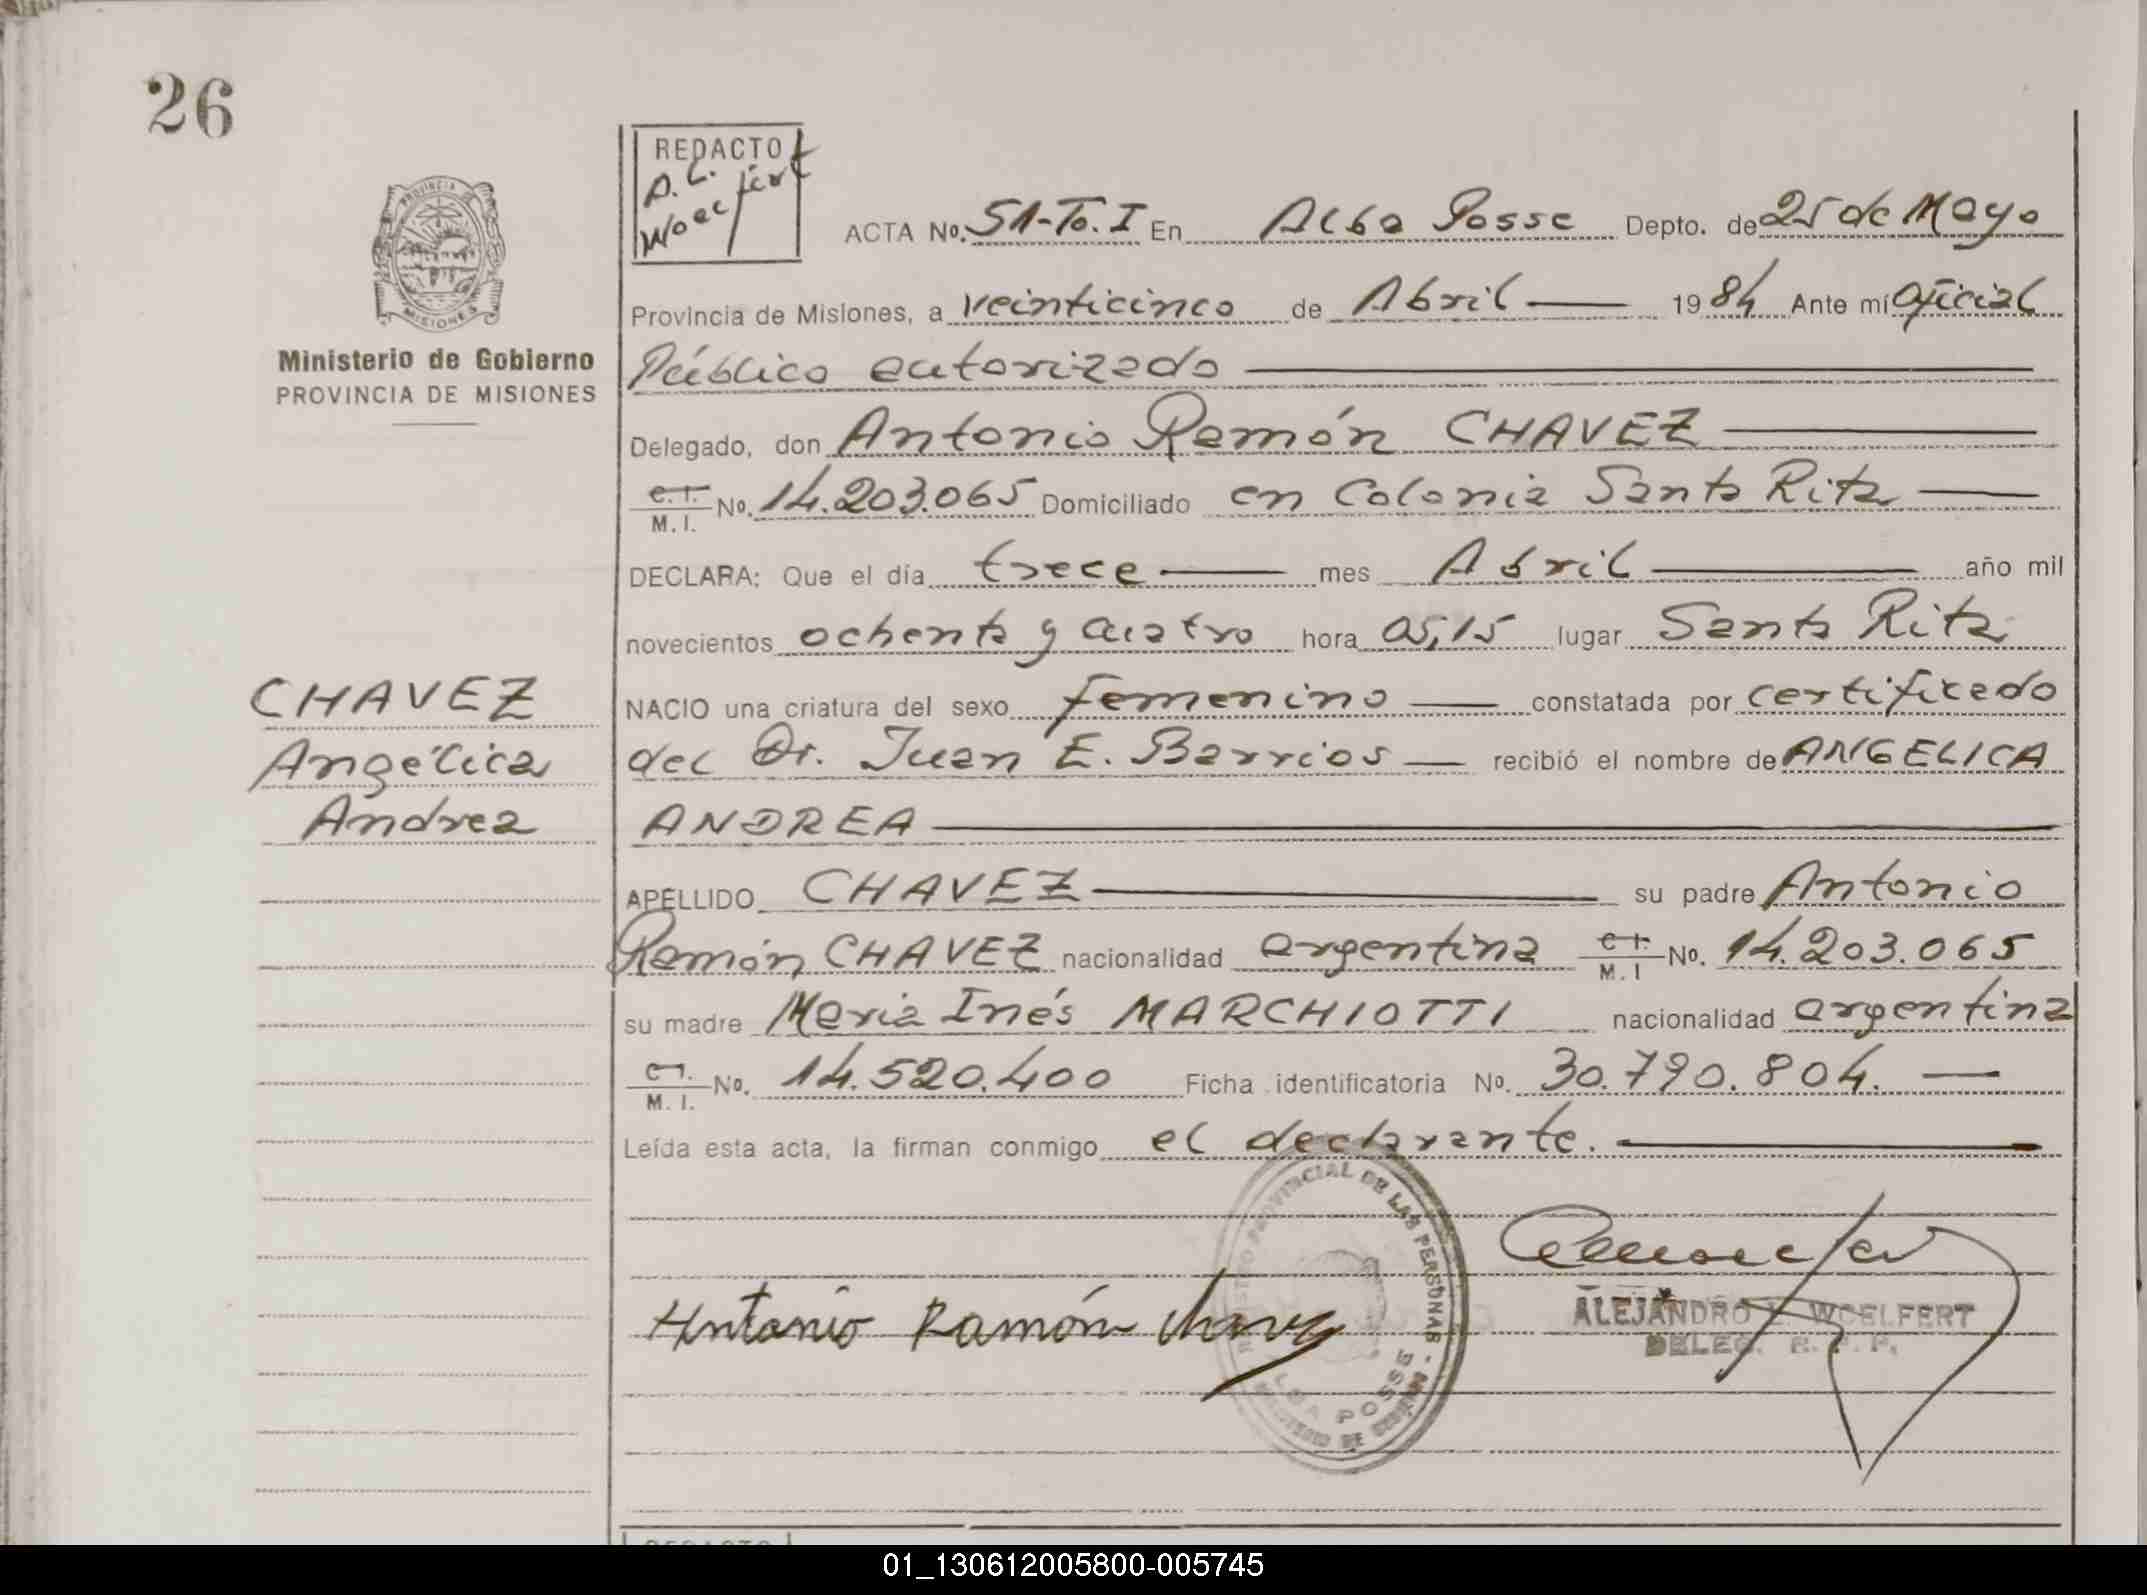 26
REDACTO
A. L.
Woelfert
ACTA No. 51-To. I En Alba Posse Depto. de 25 de Mayo
Provincia de Misiones, a veinticinco de Abril 1984 Ante mí Oficial
Público autorizado
PROVINCIA DE
MISIONES
Ministerio de Gobierno
PROVINCIA DE MISIONES
Delegado, don Antonio Ramón CHAVEZ
C. I. M. I. No. 14.203.065 Domiciliado en Colonia Santa Rita
DECLARA: Que el día trece mes Abril año mil
novecientos ochenta y cuatro hora 05,15 lugar Santa Rita
NACIO una criatura del sexo femenino constatada por certificado
del Dr. Juan E. Barrios recibió el nombre de ANGELICA
ANDREA
CHAVEZ
Angélica
Andrea
APELLIDO CHAVEZ su padre Antonio
Ramón CHAVEZ nacionalidad argentina C. I. M. I No. 14.203.065
su madre María Inés MARCHIOTTI nacionalidad argentina
C I. M. I. No. 14.520.400 Ficha identificatoria No. 30.790.804.
Leída esta acta, la firman conmigo el declarante.
REGISTRO PROVINCIAL DE LAS PERSONAS - MISIONES
ALBA POSSE
Antonio Ramón Chavez
ALEJANDRO L. WOELFERT
DELEG. R. P. P.
REDACTO
01_130612005800-005745